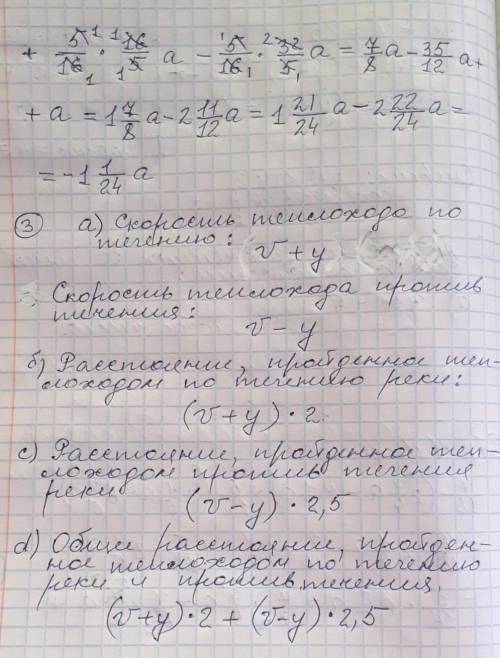 + 5/16 · 16/5 a − 5/16 · 32/5 a = 7/8 a − 35/12 a +
+ a = 1 7/8 a − 2 11/12 a = 1 21/24 a − 2 22/24 a =
= −1 1/24 a
③ a) Скорость теплохода по
течению:
v + y
Скорость теплохода против
течения:
v − y
б) Расстояние, пройденное теп-
лоходом по течению реки:
(v + y) · 2
c) Расстояние, пройденное теп-
лоходом против течения
реки
(v − y) · 2,5
d) Общее расстояние, пройден-
ное теплоходом по течению
реки и против течения.
(v+y) · 2 + (v−y) · 2,5